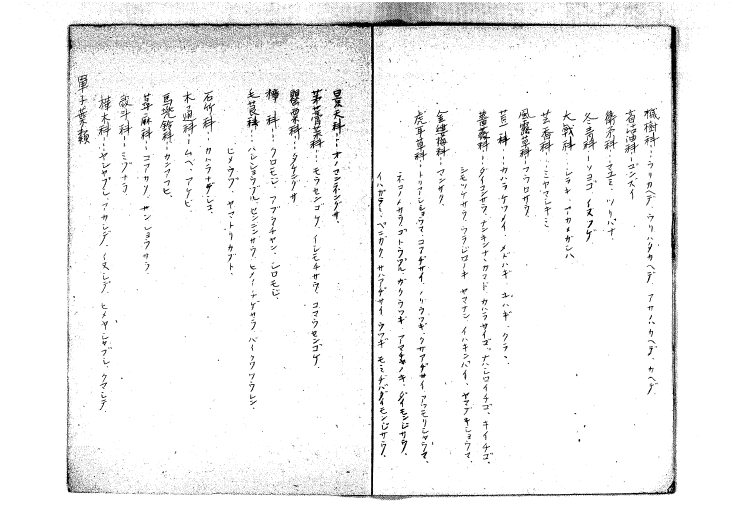 槭樹科…ウリカヘデ、ウリハダカヘデ、アサノハカヘデ、カヘデ、
省沽油科…ゴンズイ
衛矛科…マユミ、ツリバナ、
冬青科…ソヨゴ、イヌツゲ、
大戟科…シラキ、アカメガシハ
芸香科…ミヤマシキミ
風露草科…フウロサウ、
荳科…カハラケツメイ、メドハギ、ヱハギ、クララ、
薔薇科…ダイコンサウ、ナンキンナナカマド、カハラサイコ、ナハシロイチゴ、キイチゴ、
シモツケサウ、ウラジローキ、ヤマナシ、イハキンバイ、ヤマブキショウマ、
金縷梅科…マンサク、
虎耳草科…トリアシショウマ、コアヂサイ、ノリウツギ、クサアヂサイ、アワモリショウマ、
ネコノメサウ、ゴトウヅル、ガクウツギ、アマチャノキ、ダイモンジサウ、
イハガラミ、ベニガク、サハアヂサイ、ウツギ、モミヂバダイモンジサウ、
景天科…オノマンネングサ、
茅膏菜科…モウセンゴケ、イシモチサウ、コマウセンゴケ、
罌粟科…タケニグサ、
樟科…クロモジ、アブラチャン、シロモジ、
毛茛科…ハンショウヅル、センニンサウ、ヒメイチゲサウ、バイクワワウレン、
ヒメウヅ、ヤマトリカブト、
石竹科…カハラナデシコ、
木通科…ムベ、アケビ、
馬兜鈴科…カンアフヒ、
蕁麻科…コアカソ、サンショウサウ、
殻斗科…ミヅナラ、
樺木科…ヤシャブシ、アカシデ、イヌシデ、ヒメヤシャブシ、クマシデ、
單子葉類